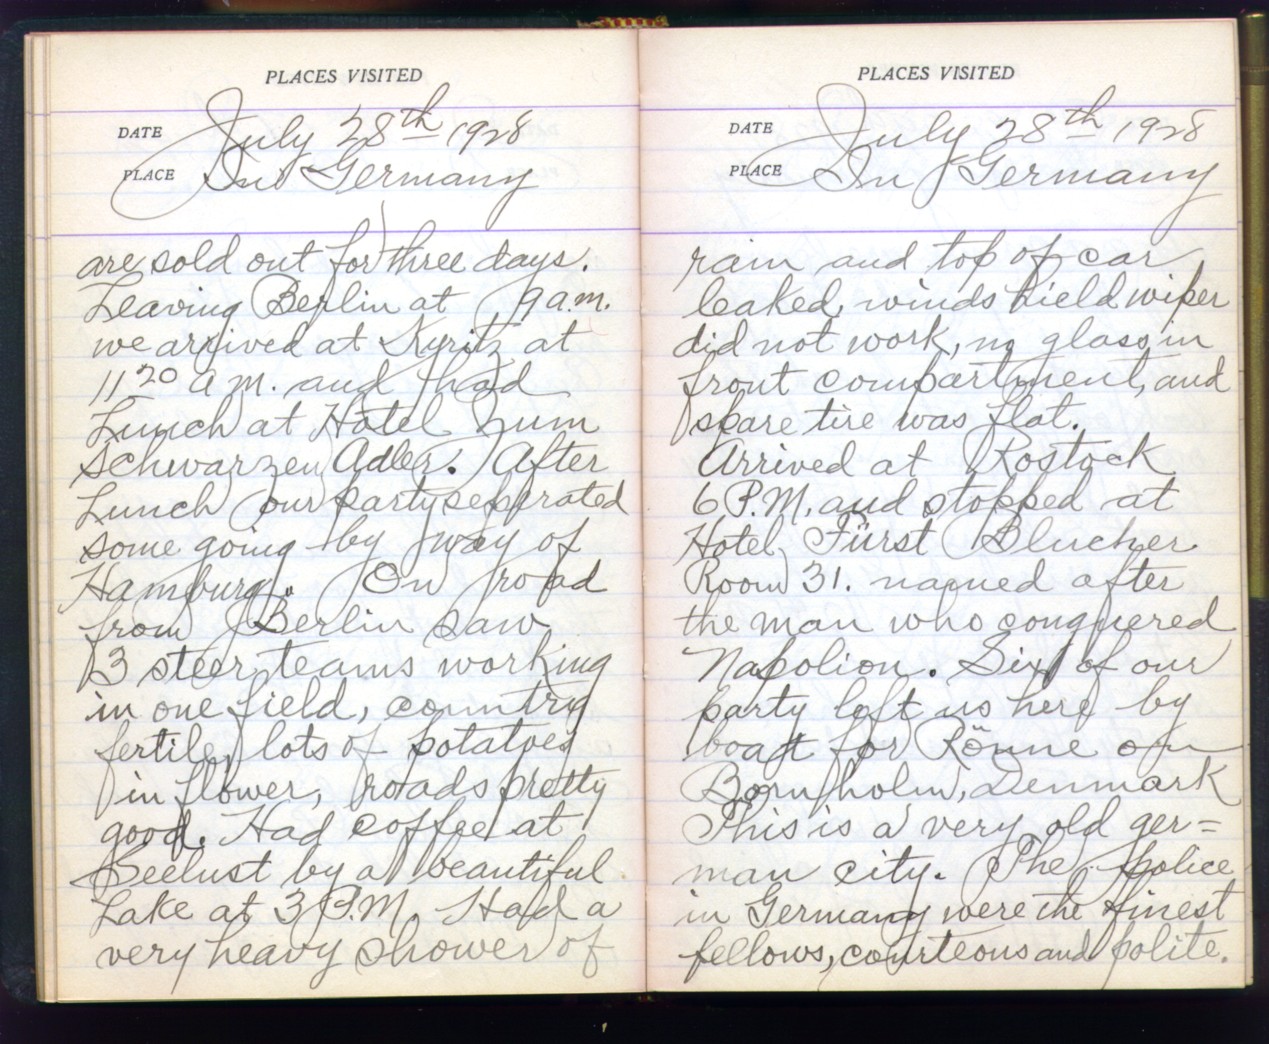 PLACES VISITED
DATE July 28th 1928
PLACE In Germany
are sold out for three days.
Leaving Berlin at 9 a.m.
we arrived at Kyritz at
11 20 a.m. and had
Lunch at Hotel Zum
Schwarzen Adler. After
Lunch our party seperated
some going by way of
Hamburg. On road
from Berlin saw
13 steer teams working
in one field, country
fertile, lots of potatoes
in flower, roads pretty
good. Had coffee at
Seelust by a beautiful
Lake at 3 P.M. Had a
very heavy shower of
PLACES VISITED
DATE July 28th 1928
PLACE In Germany
rain and top of car
leaked, windshield wiper
did not work, no glass in
front compartment, and
spare tire was flat.
Arrived at Rostock
6 P.M. and stopped at
Hotel Fürst Blucher
Room 31. named after
the man who conquered
Napolion. Six of our
party left us here by
boat for Rönne on
Bornholm, Denmark
This is a very old ger=
man city. The police
in Germany were the finest
fellows, courteous and polite.